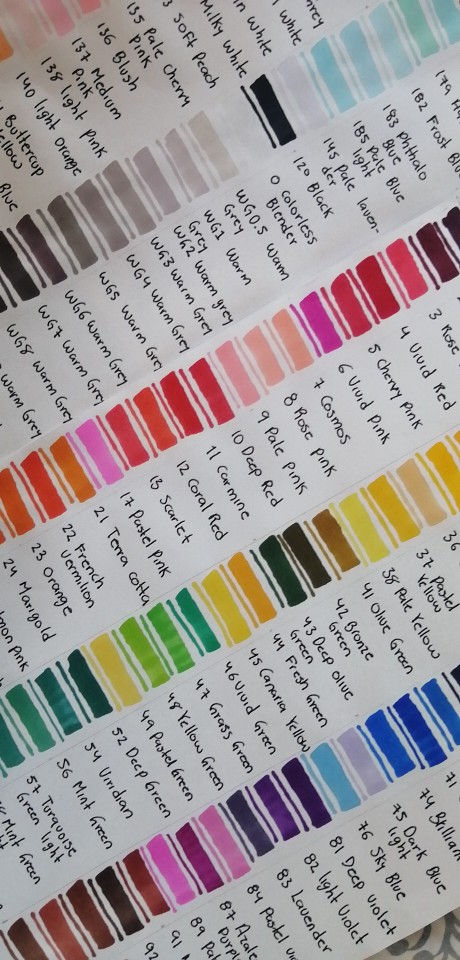 Grey
White
White
Milky White
Soft Peach
Cherry
135 Pale
Pink
136 Blush
137 Medium
Pink
138 light Pink
140 light orange
Buttercup
Yellow
Blue
179
182 Frost Blue
183 Phthalo
Blue
185 Pale Blue
light
145 Pale
der
120 Black
0 colorless
Blender
WG0.5 Warm
Grey
WG1 Warm
Grey
WG2 Warm grey
WG3 Warm Grey
WG4 Warm Grey
WG5 Warm Grey
WG6 Warm Grey
WG7 Warm Grey
WG8 Warm Grey
Warm Grey
3 Rose
4 Vivid Red
5 Cherry Pink
6 Vivid Pink
7 Cosmos
8 Rose Pink
9 Pale Pink
10 Deep Red
11 Carmine
12 Coral Red
13 Scarlet
17 Pastel Pink
21 Terra Cotta
22 French
Vermilion
23 Orange
24 Marigold
Pink
36
37 Pastel
Yellow
38 Pale Yellow
41 Olive Green
42 Bronze
Green
43 Deep Olive
Green
44 Fresh Green
45 Canaria Yellow
46 Vivid Green
47 Grass Green
48 Yellow Green
49 Pastel Green
52 Deep Green
54 Viridian
56 Mint Green
57 Turquoise
Green light
Mint
Green
71
74 Brilliant
75 Dark Blue
light
76 Sky Blue
81 Deep Violet
82 light Violet
83 Lavender
84 Pastel
87 Azalea
Purple
89 Pale
91
92